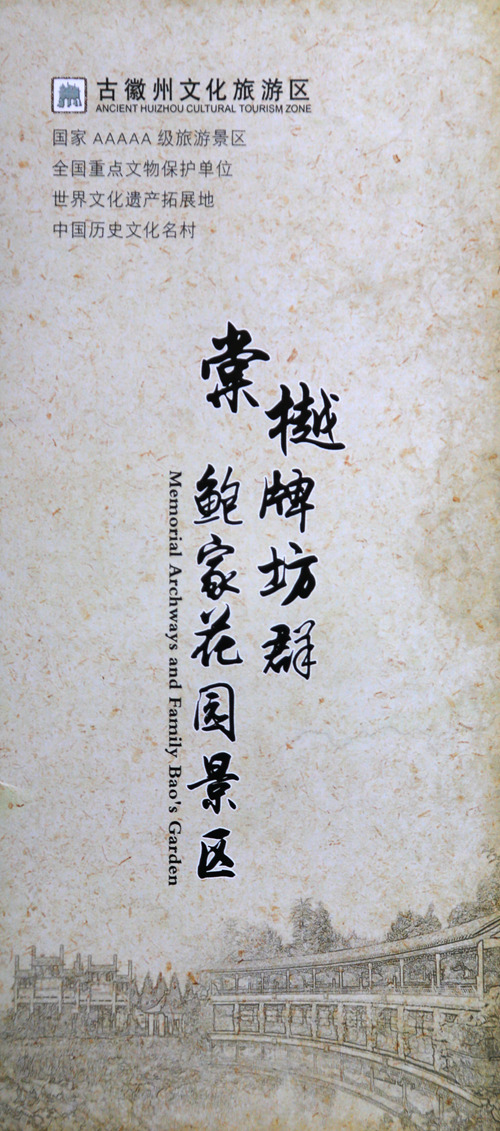 古徽州文化旅游区
ANCIENT HUIZHOU CULTURAL TOURISM ZONE
国家 AAAAA 级旅游景区
全国重点文物保护单位
世界文化遗产拓展地
中国历史文化名村
棠樾牌坊群
鲍家花园景区
Memorial Archways and Family Bao's Garden